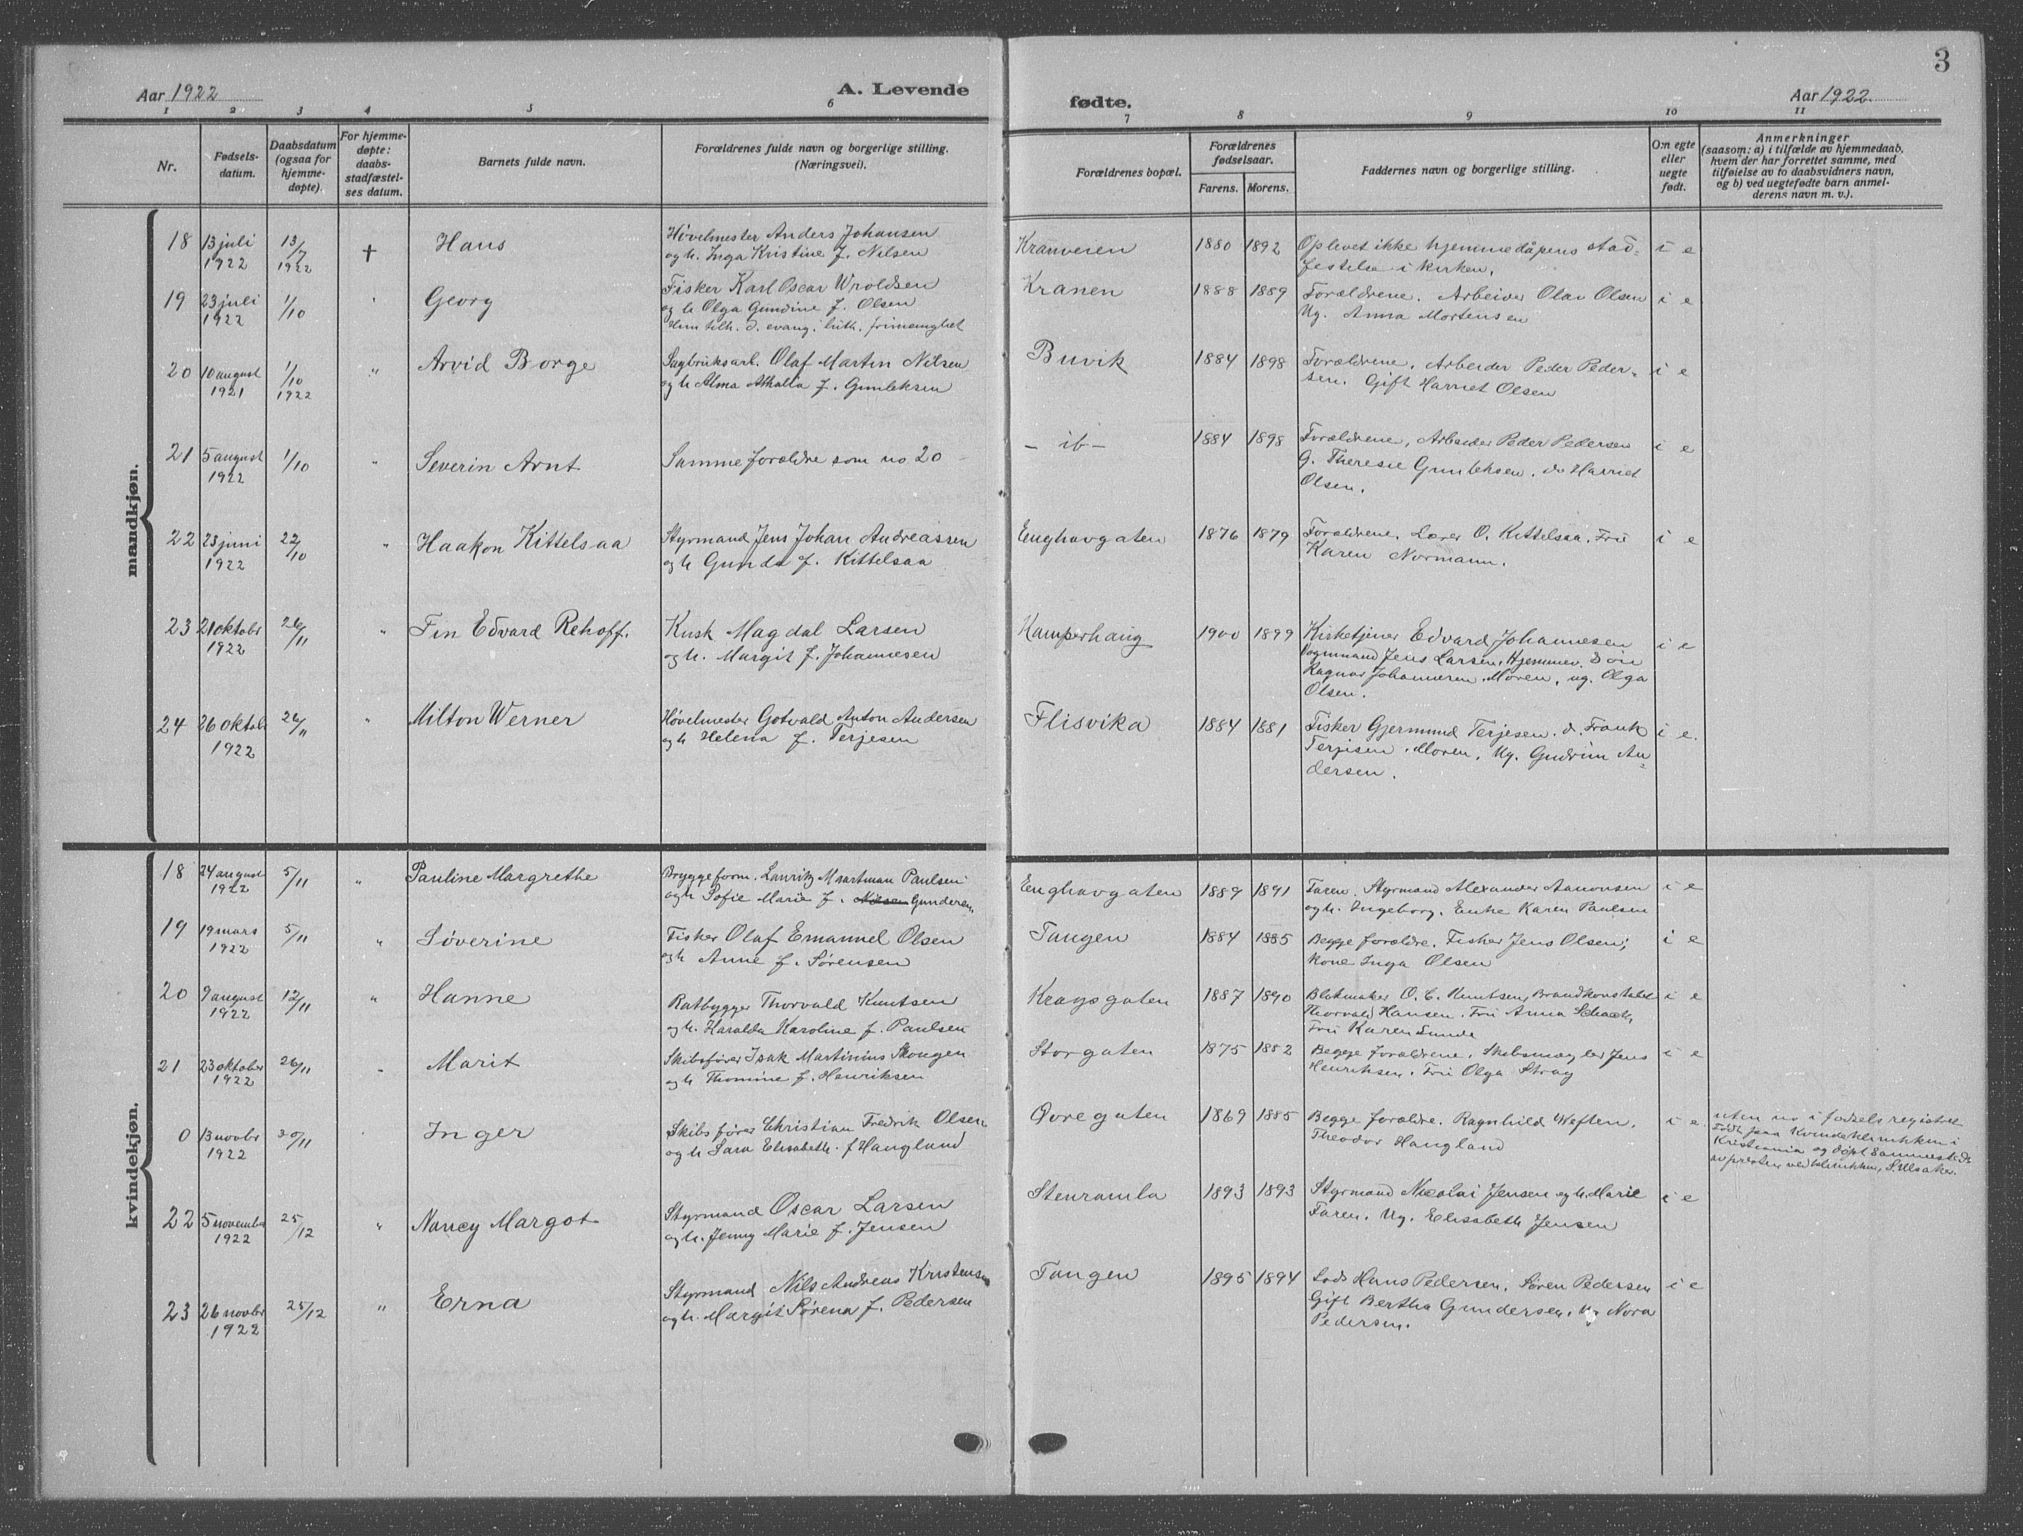 3
Aar 1922
A. Levende
fødte.
Aar 1922
1 2 3 4 5 6 7 8 9 10 11
Nr.
Fødsels-
datum.
Daabsdatum
(ogsaa for
hjemme-
døpte).
For hjemme-
døpte:
daabs-
stadfæstel-
ses datum.
Barnets fulde navn.
Forældrenes fulde navn og borgerlige stilling.
(Næringsvei).
Forældrenes bopæl.
Forældrenes
fødselsaar.
Farens. Morens.
Faddernes navn og borgerlige stilling.
O:n egte
eller
uegte
født.
Anmerkninger
(saasom: a) i tilfælde av hjemmedaab,
hvem der har forrettet samme, med
tilføielse av to daabsvidners navn,
og b) ved uegtefødte barn anmel-
derens navn m. v.).
mandkjøn.
18 13 juli 1922 13/7 1922 † Hans
Høvelmester Anders Johansen
og h. Inga Kristine f. Nilsen
Kranveien 1880 1892
Oplevet ikke hjemmedåpens stad-
festelse i kirken.
i e
19 23 juli 1922 1/10 " Georg
Fisker Karl Oscar Wroldsen
og h Olga Gundine f. Olsen
Hun tilh. d. evang. luth. frimenighet
Kranen 1888 1889
Forældrene. Arbeider Olav Olsen
Ug. Anna Mortensen
i e
20 10 august 1921 1/10 1922 " Arvid Borge
Sagbruksarb. Olaf Martin Nilsen
og h Alma Athalia f. Gunleksen
Buvik 1884 1898
Forældrene. Arbeider Peder Peder-
sen. Gift Harriet Olsen
i e
21 5 august 1922 1/10 " Severin Arnt
Samme forældre som no 20
- ib - 1884 1898
Forældrene, Arbeider Peder Pedersen
G. Theresie Gunleksen. do Harriet
Olsen.
i e
22 23 juni 1922 22/10 " Haakon Kittelsaa
Styrmand Jens Johan Andreassen
og h Gunda f. Kittelsaa
Enghavgaten 1876 1879
Forældrene. Lærer O. Kittelsaa. Fru
Karen Normann.
i e
23 21 oktobr 1922 26/11 " Fin Edvard Rehoff.
Kusk Magdal Larsen
og h. Margit f. Johannesen
Hamperhaug 1900 1899
Kirketjener Edvard Johannesen
Vognmand Jens Larsen. Hjemmev. Søn
Ragnar Johannesen. Moren, ug. Olga
Olsen.
i e
24 26 oktob 1922 26/11 " Milton Werner
Høvelmester Gotvald Anton Andersen
og h Helena f. Terjesen
Flisvika 1884 1881
Fisker Gjermund Terjesen. d. Frank
Terjesen. Moren, Ug. Gudrun An-
dersen.
i e.
kvindekjøn.
18 24 august 1922 5/11 " Pauline Margrethe
Bryggeform. Lauritz Maartman Paulsen
og h Sofie Marie f. Nilsen Gundersen
Enghavgaten 1889 1891
Faren. Styrmand Alexander Aanonsen
og h. Ingeborg. Enke Karen Paulsen
i e
19 19 mars 1922 5/11 " Søverine
Fisker Olaf Emanuel Olsen
og h Anne f. Sørensen
Tangen 1884 1885
Begge forældre. Fisker Jens Olsen;
kone Inga Olsen
i e
20 9 august 1922 12/11 " Hanne
Ratbygger Thorvald Knutsen
og h. Haralda Karoline f. Paulsen
Kragsgaten 1887 1890
Blokmaker O. C. Knutsen, Brandkonstabel
Thorvald Hansen. Fru Anna Schack,
Fru Karen Sunde
i e
21 23 oktober 1922 26/11 - Marit
Skibsfører Isak Martinius Skongen
og h Thomine f. Henriksen
Storgaten 1875 1882
Begge forældrene. Skibsmægler Jens
Henriksen. Fru Olga Stray
i e
0 13 novbr 1922 30/11 Inger
Skibsfører Christian Fredrik Olsen
og h Sara Elisabeth f Haugland
Øvregaten 1869 1885
Begge forældre. Ragnhild Weften.
Theodor Haugland
i e.
uten no i fødsels registret
Født paa Kvindeklinikken i
Kristiania og døpt sammesteds
av presten ved klinikken,
22 5 novembr 1922 25/12 " Nancy Margot
Styrmand Oscar Larsen
og h. Jenny Marie f. Jensen
Stenramla 1893 1893
Styrmand Nicolai Jensen og h. Marie
Faren. Ug. Elisabeth Jensen
i e
23 26 novbr 1922 25/12 " Erna
Styrmand Nils Andreas Kristensen
og h. Margit Sørena f. Pedersen
Tangen 1895 1894
Lods Hans Pedersen, Søren Pedersen
Gift Bertha Gundersen, Ug Nora
Pedersen.
i e